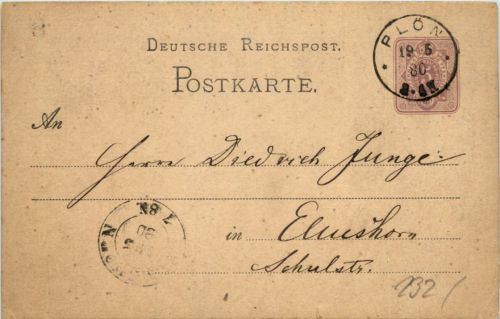 DEUTSCHE REICHSPOST.
POSTKARTE.
PLÖN
19 5
80
An
Herrn Diedrich Junge.
in Elmshorn
Schulstr.
232